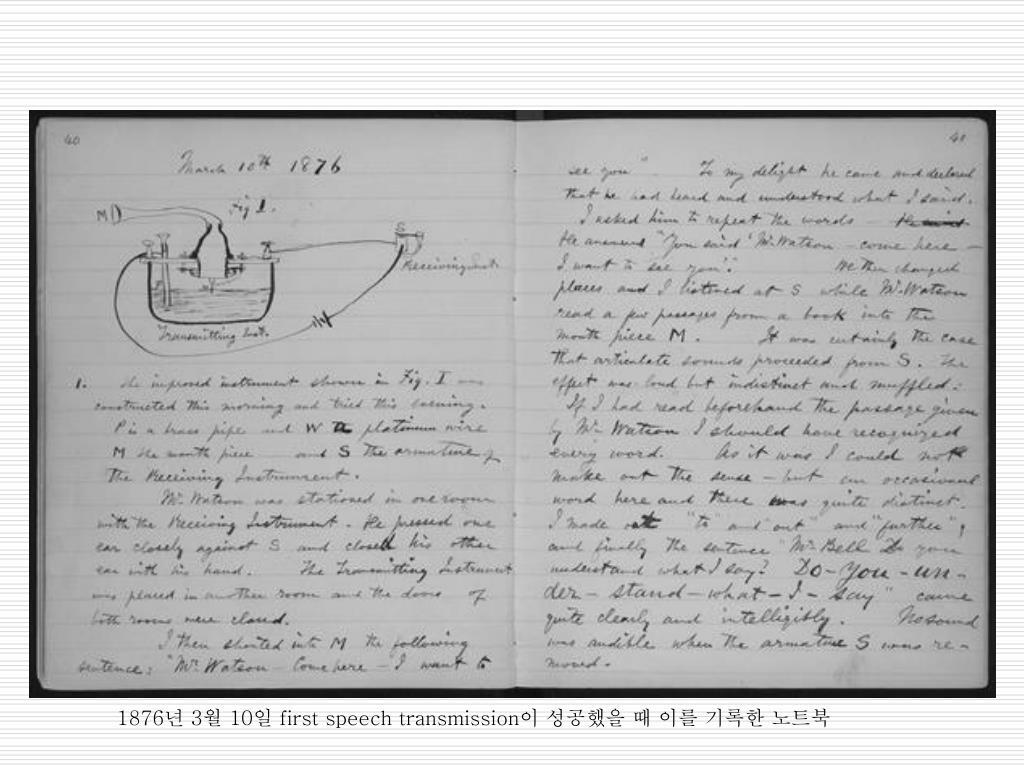 40
March 10th 1876
Fig 1.
M
S
Receiving Inst.
Transmitting Inst.
1. The improved instrument shown in Fig. I was
constructed this morning and tried this evening.
P is a brass pipe and W the platinum wire
M the mouth piece and S the armature of
the Receiving Instrument.
Mr. Watson was stationed in one room
with the Receiving Instrument. He pressed one
ear closely against S and closed his other
ear with his hand. The Transmitting Instrument
was placed in another room and the doors of
both rooms were closed.
I then shouted into M the following
sentence: "Mr. Watson - Come here - I want to
41
see you". To my delight he came and declared
that he had heard and understood what I said.
I asked him to repeat the words -
He answered "You said 'Mr. Watson - come here -
I want to see you'." We then changed
places and I listened at S while Mr. Watson
read a few passages from a book into the
mouth piece M. It was certainly the case
that articulate sounds proceeded from S. The
effect was loud but indistinct and muffled.
If I had read beforehand the passage given
by Mr. Watson I should have recognized
every word. As it was I could not
make out the sense - but an occasional
word here and there was quite distinct.
I made out "to" and "out" and "further";
and finally the sentence "Mr. Bell Do you
understand what I say? Do-you-un-
der-stand-what-I-say" came
quite clearly and intelligibly. No sound
was audible when the armature S was re-
moved.
1876년 3월 10일 first speech transmission이 성공했을 때 이를 기록한 노트북